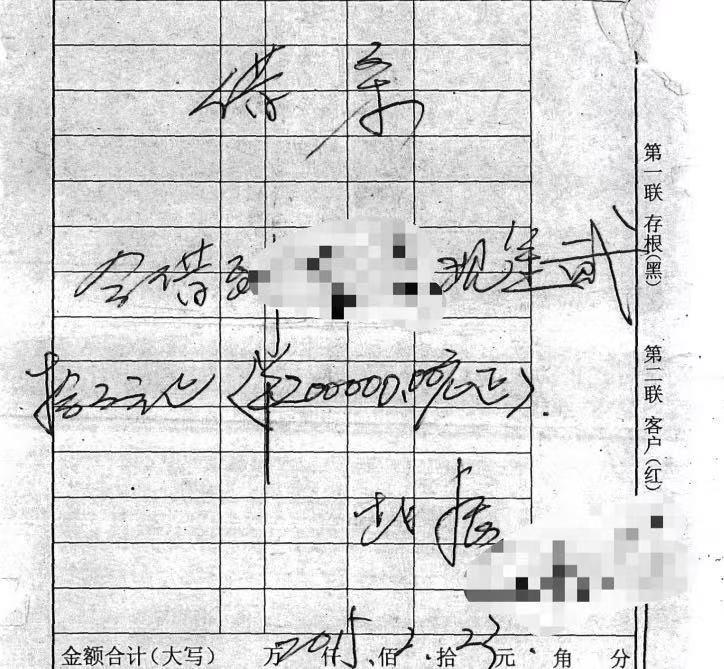 借条
今借到 现金贰
拾万元正（￥200000.00元正）.
据
2015.2.23.
第一联 存根（黑）
第二联 客户（红）
金额合计（大写） 万 仟 佰 拾 元 角 分